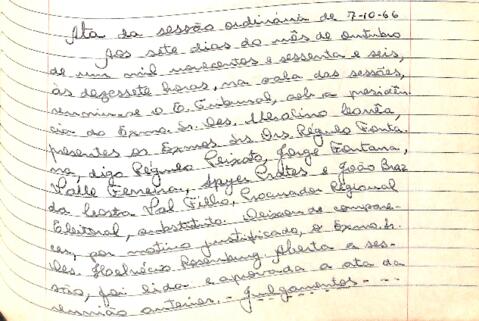 Ata da sessão ordinária de 7-10-66
Aos sete dias do mês de outubro
de um mil novecentos e sessenta e seis,
às dezessete horas, na sala das sessões,
reuniu-se o E. Tribunal, sob a presidên
cia do Exmo. Sr. Des. Merolino Corrêa,
presentes os Exmos Srs Drs. Régulo Fonta
na, digo Régulo Peixoto, Jorge Fontana,
Valle Ferreira, Ayres Prates e João Braz
da Costa Val Filho, Procurador Regional
Eleitoral, substituto. Deixou de compare-
cer, por motivo justificado, o Exmo. Sr.
Des. Rosenburg. Aberta a ses-
são, foi lida e aprovada a ata da
reunião anterior. - Julgamentos - - -